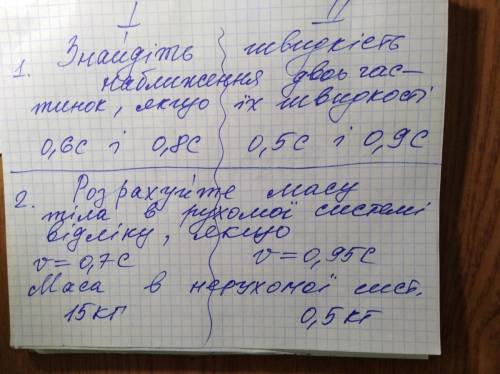 I II
1. Знайдіть швидкість
наближення двох час-
тинок, якщо їх швидкості
0,6с і 0,8с 0,5с і 0,9с
2. Розрахуйте масу
тіла в рухомої системі
відліку, якщо
v=0,7с v=0,95с
Маса в нерухомої сист.
15кг 0,5кг